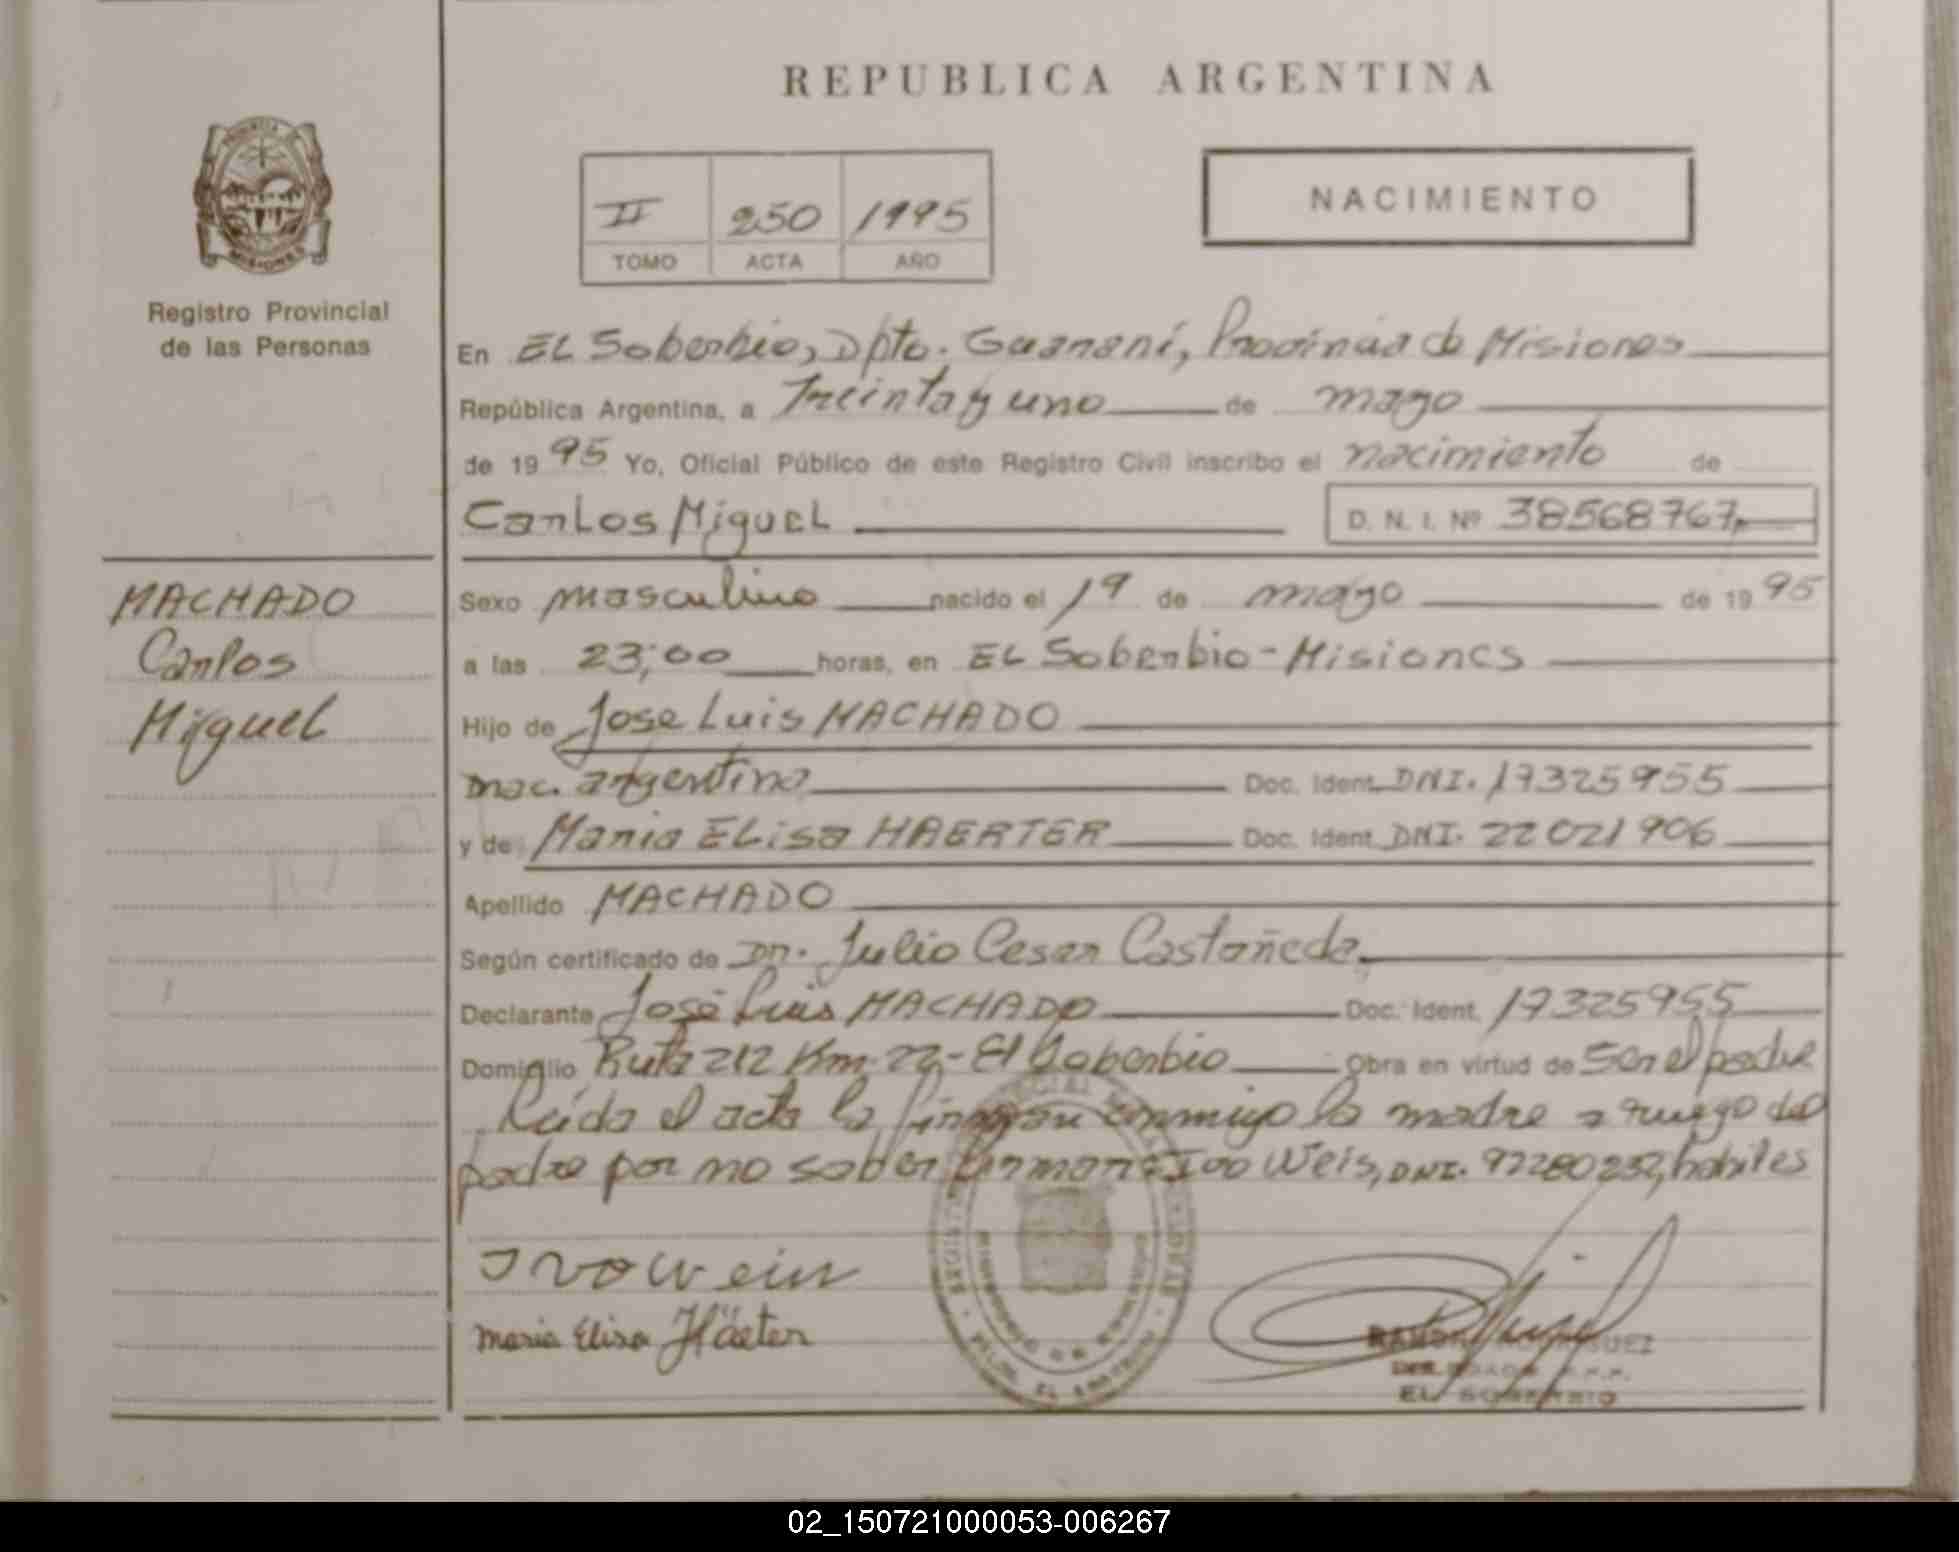 REPUBLICA ARGENTINA
PROVINCIA DE
MISIONES
Registro Provincial
de las Personas
II 250 1995
TOMO ACTA AÑO
NACIMIENTO
En EL Soberbio, Dpto. Guaraní, Provincia de Misiones
República Argentina, a Treinta y uno de mayo
de 1995 Yo, Oficial Público de este Registro Civil inscribo el nacimiento de
Carlos Miguel D. N. I. Nº 38568767
MACHADO
Carlos
Miguel
Sexo masculino nacido el 19 de mayo de 1995
a las 23;00 horas, en EL Soberbio - Misiones
Hijo de Jose Luis MACHADO
nac. argentina Doc. Ident. DNI. 17325955
y de Maria ELisa HAERTER Doc. Ident. DNI. 22021906
Apellido MACHADO
Según certificado de Dr. Julio Cesar Castañeda
Declarante José Luis MACHADO Doc. Ident. 17325955
Domicilio Ruta 212 Km. 22 - El Soberbio Obra en virtud de Ser el padre
Leída el acta la firman conmigo la madre a ruego del
padre por no saber firmar Ivo Weis, DNI. 92280232, habiles
Ivo Wein
maria Elisa Häeter
EL SOBERBIO
02_150721000053-006267